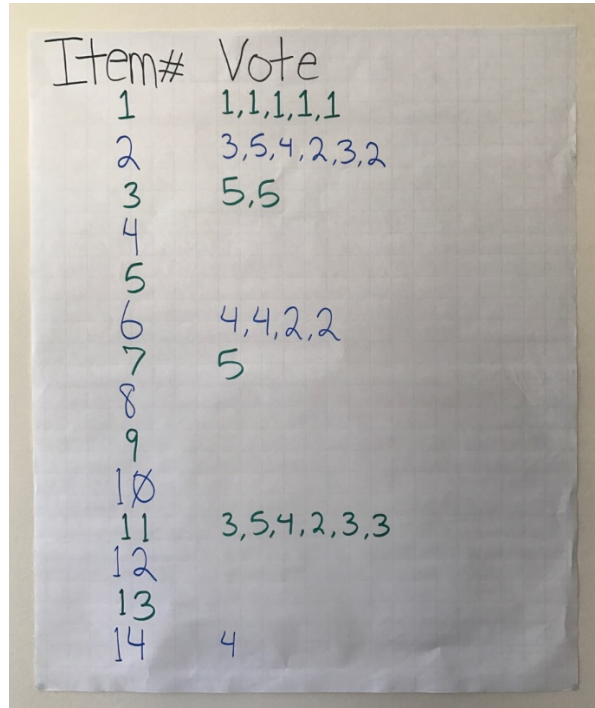 Item# Vote
1 1,1,1,1,1
2 3,5,4,2,3,2
3 5,5
4
5
6 4,4,2,2
7 5
8
9
10
11 3,5,4,2,3,3
12
13
14 4